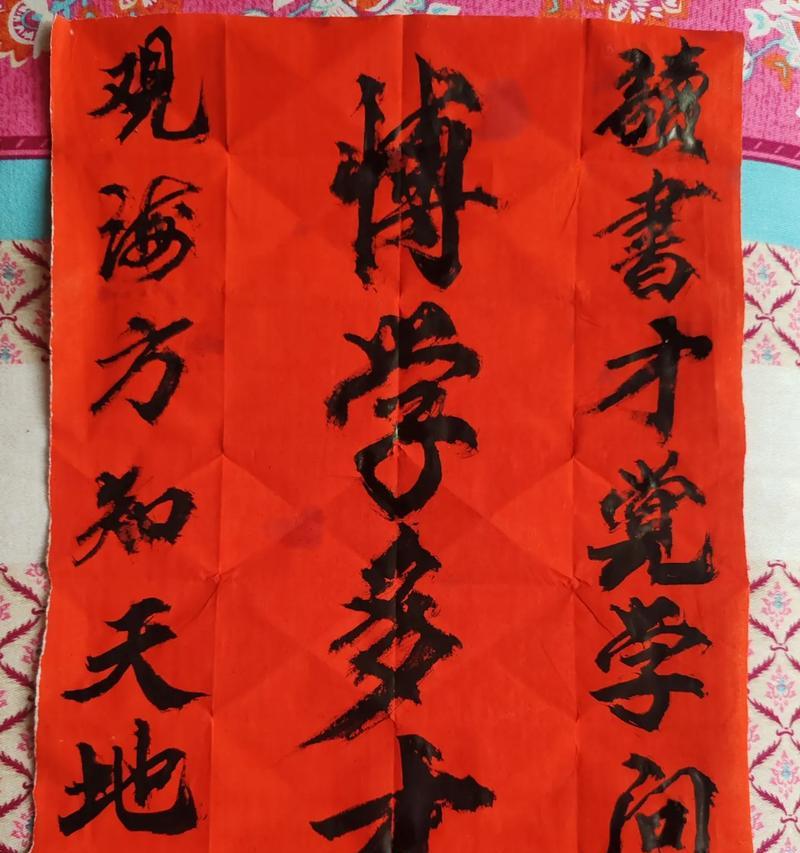 讀書才覚学问
博学多才
观海方知天地